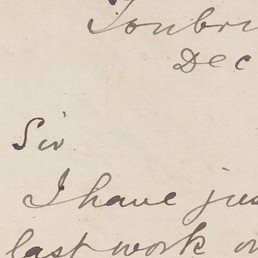 Tonbri
Dec
Sir.
I have jus
last work on